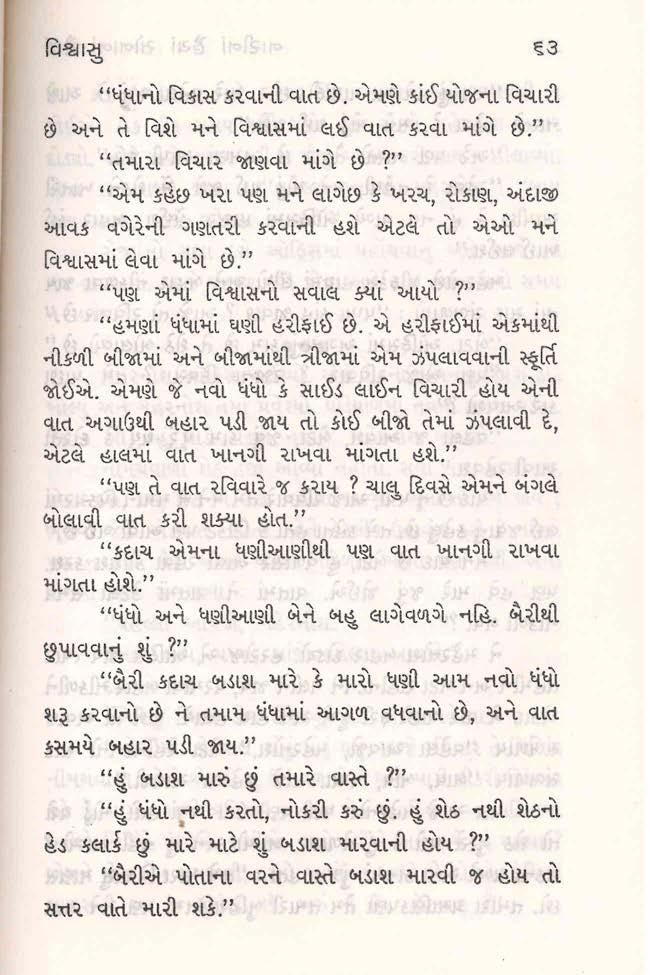 વિશ્વાસુ ૬૩
“ધંધાનો વિકાસ કરવાની વાત છે. એમણે કાંઈ યોજના વિચારી
છે અને તે વિશે મને વિશ્વાસમાં લઈ વાત કરવા માંગે છે.”
“તમારા વિચાર જાણવા માંગે છે ?”
“એમ કહેછ ખરા પણ મને લાગેછ કે ખરચ, રોકાણ, અંદાજી
આવક વગેરેની ગણતરી કરવાની હશે એટલે તો એઓ મને
વિશ્વાસમાં લેવા માંગે છે.”
“પણ એમાં વિશ્વાસનો સવાલ ક્યાં આયો ?”
“હમણાં ધંધામાં ઘણી હરીફાઈ છે. એ હરીફાઈમાં એકમાંથી
નીકળી બીજામાં અને બીજામાંથી ત્રીજામાં એમ ઝંપલાવવાની સ્ફૂર્તિ
જોઈએ. એમણે જે નવો ધંધો કે સાઈડ લાઈન વિચારી હોય એની
વાત અગાઉથી બહાર પડી જાય તો કોઈ બીજો તેમાં ઝંપલાવી દે,
એટલે હાલમાં વાત ખાનગી રાખવા માંગતા હશે.”
“પણ તે વાત રવિવારે જ કરાય ? ચાલુ દિવસે એમને બંગલે
બોલાવી વાત કરી શક્યા હોત.”
“કદાચ એમના ધણીઆણીથી પણ વાત ખાનગી રાખવા
માંગતા હોશે.”
“ધંધો અને ધણીઆણી બેને બહુ લાગેવળગે નહિ. બૈરીથી
છુપાવવાનું શું ?”
“બૈરી કદાચ બડાશ મારે કે મારો ધણી આમ નવો ધંધો
શરૂ કરવાનો છે ને તમામ ધંધામાં આગળ વધવાનો છે, અને વાત
કસમયે બહાર પડી જાય.”
“હું બડાશ મારું છું તમારે વાસ્તે ?”
“હું ધંધો નથી કરતો, નોકરી કરું છું, હું શેઠ નથી શેઠનો
હેડ કલાર્ક છું મારે માટે શું બડાશ મારવાની હોય ?”
“બૈરીએ પોતાના વરને વાસ્તે બડાશ મારવી જ હોય તો
સત્તર વાતે મારી શકે.”